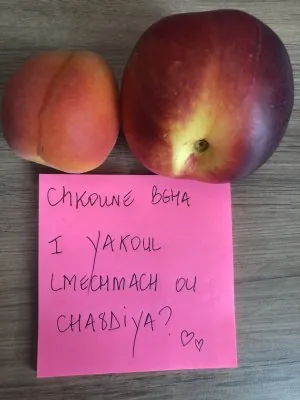 CHKOUNE BGHA
I YAKOUL
LMECHMACH OU
CHA8DIYA?